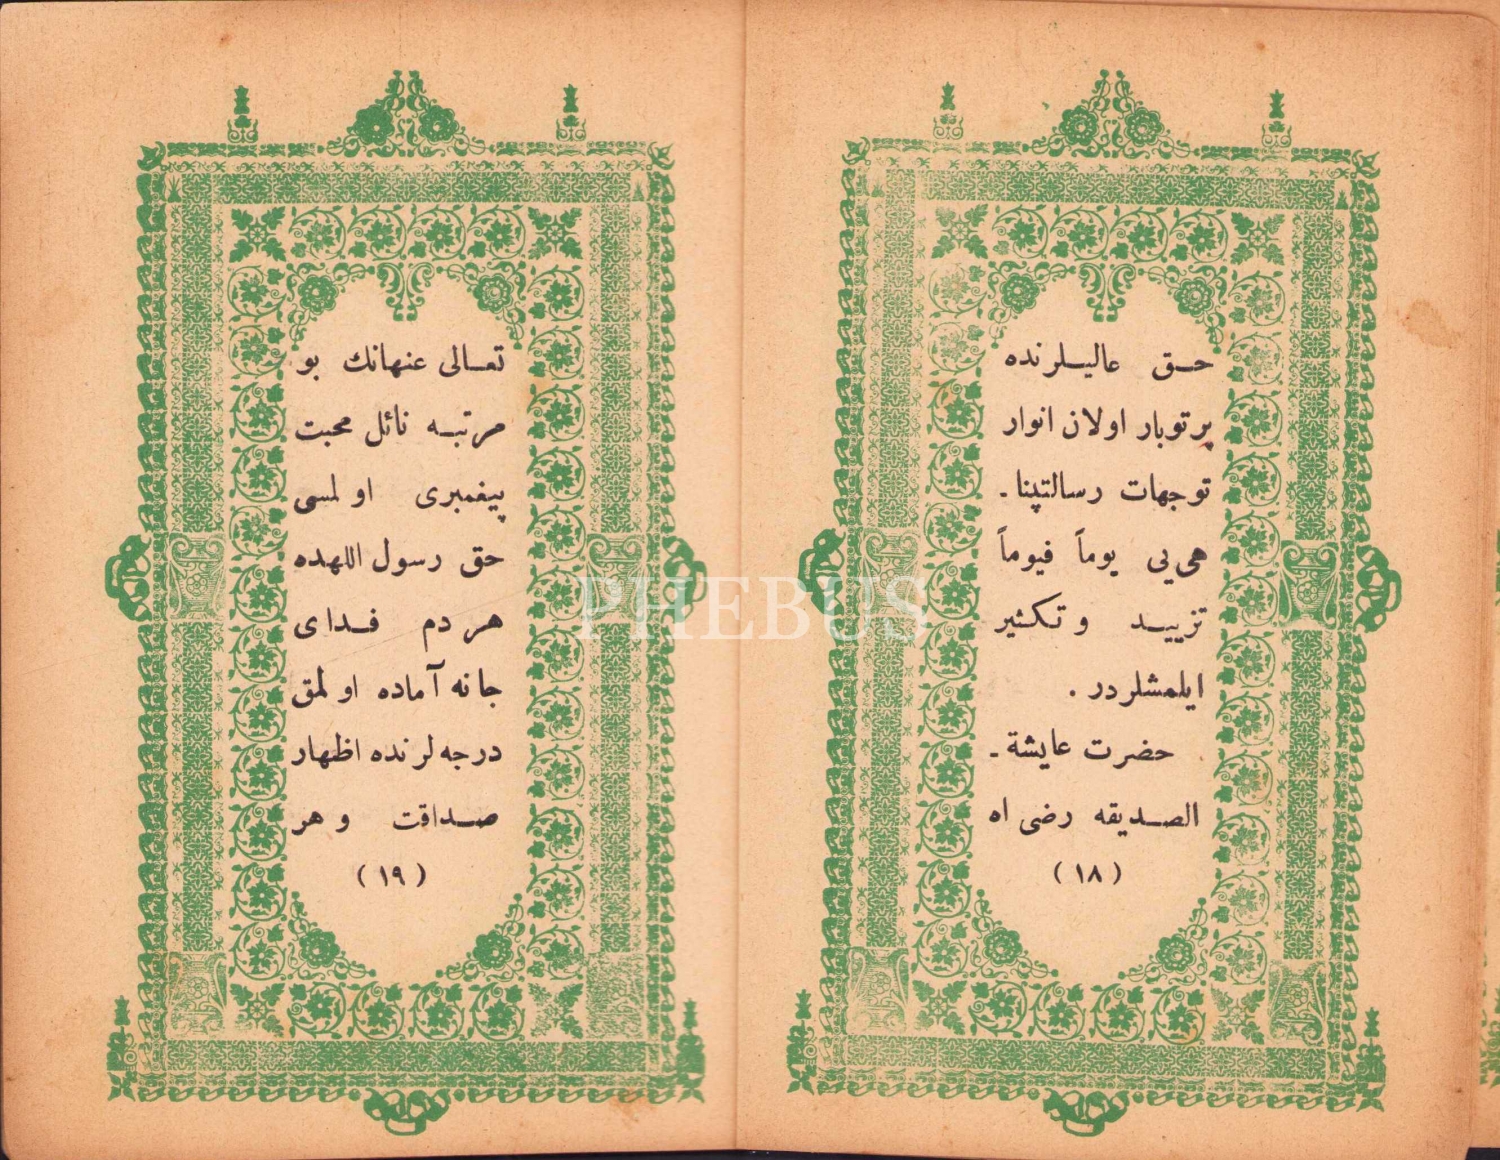 حـق عاليـلرنده
پرتوبار اولان انوار
توجهات رسالتپنا ـ
هى يى يوماً فيوماً
تزييـد و تكثير
ايلمشلردر .
حضرت عايشة ـ
الصـديقه رضى اه
( ١٨ )
تعـالى عنهانك بو
مرتبـه نائل محبت
پيغمبرى اولمسى
حق رسول اللهده
هر دم فـداى
جانه آماده اولمق
درجه لرنده اظهار
صـداقت و هر
( ١٩ )
PHEBUS